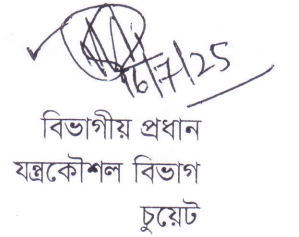 16/7/25
বিভাগীয় প্রধান
যন্ত্রকৌশল বিভাগ
চুয়েট